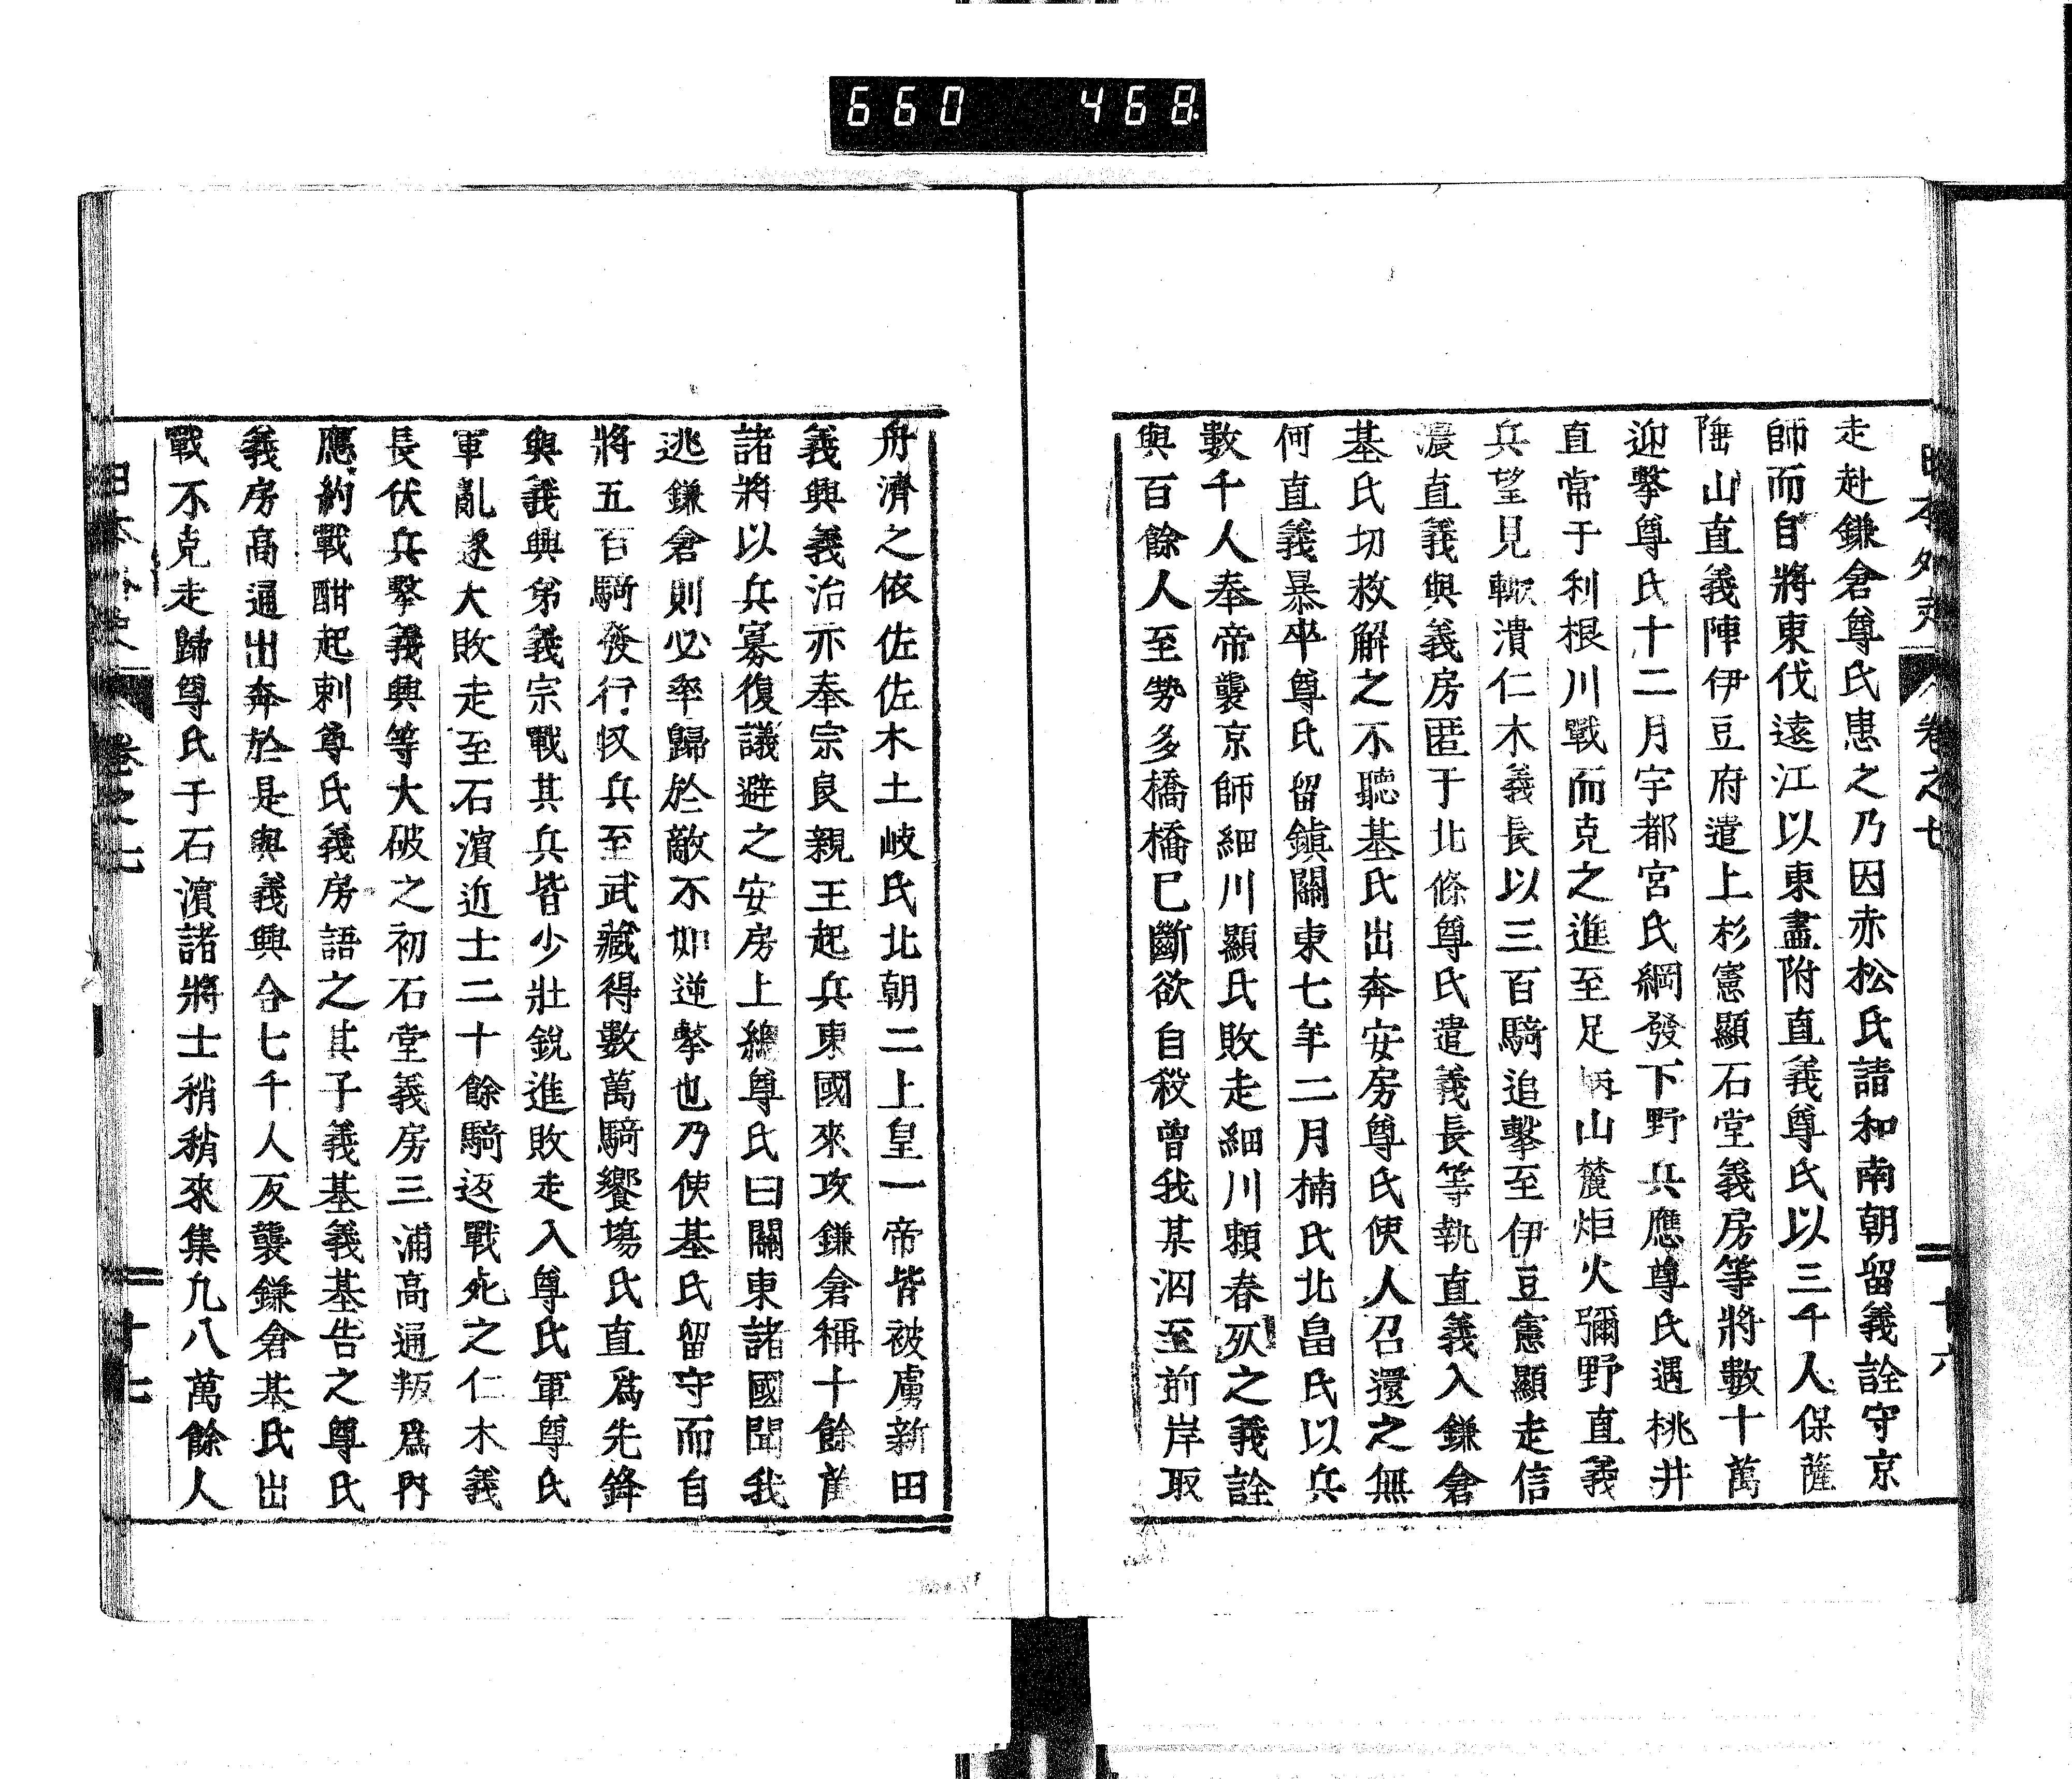 660 468
日本外史 卷之七 十六
走赴鎌倉尊氏患之乃因赤松氏請和南朝留義詮守京
師而自將東伐遠江以東盡附直義尊氏以三千人保薩
埵山直義陣伊豆府遣上杉憲顯石堂義房等將數十萬
迎擊尊氏十二月宇都宮氏綱發下野兵應尊氏遇桃井
直常于利根川戰而克之進至足柄山麓炬火彌野直義
兵望見輙潰仁木義長以三百騎追擊至伊豆憲顯走信
濃直義與義房匿于北條尊氏遣義長等執直義入鎌倉
基氏切救解之不聽基氏出奔安房尊氏使人召還之無
何直義暴卒尊氏留鎮關東七年二月楠氏北畠氏以兵
數千人奉帝襲京師細川顯氏敗走細川賴春死之義詮
與百餘人至勢多橋橋已斷欲自殺曾我某泅至前岸取
舟濟之依佐佐木土岐氏北朝二上皇一帝皆被虜新田
義興義治亦奉宗良親王起兵東國來攻鎌倉稱十餘萬
諸將以兵寡復議避之安房上總尊氏曰關東諸國聞我
逃鎌倉則必率歸於敵不如逆擊也乃使基氏留守而自
將五百騎發行收兵至武藏得數萬騎饗塲氏直爲先鋒
與義興弟義宗戰其兵皆少壯銳進敗走入尊氏軍尊氏
軍亂遂大敗走至石濱近士二十餘騎返戰死之仁木義
長伏兵擊義興等大破之初石堂義房三浦高通叛爲內
應約戰酣起刺尊氏義房語之其子義基義基告之尊氏
義房高通出奔於是與義興合七千人反襲鎌倉基氏出
戰不克走歸尊氏于石濱諸將士稍稍來集九八萬餘人
日本外史 卷之七 十七